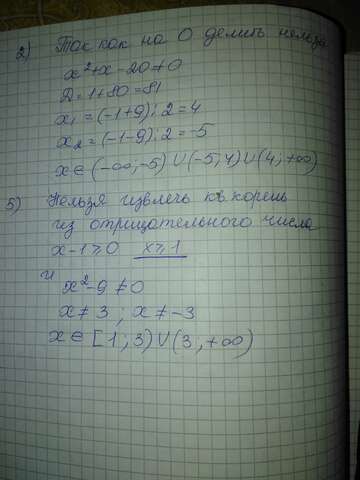 2) Так как на 0 делить нельзя
x²+x-20≠0
D=1+80=81
x₁=(-1+9):2=4
x₂=(-1-9):2=-5
x∈(-∞,-5)∪(-5;4)∪(4;+∞)
5) Нельзя извлечь кв. корень
из отрицательного числа
x-1≥0 x≥1
и
x²-9≠0
x≠3; x≠-3
x∈[1;3)∪(3;+∞)